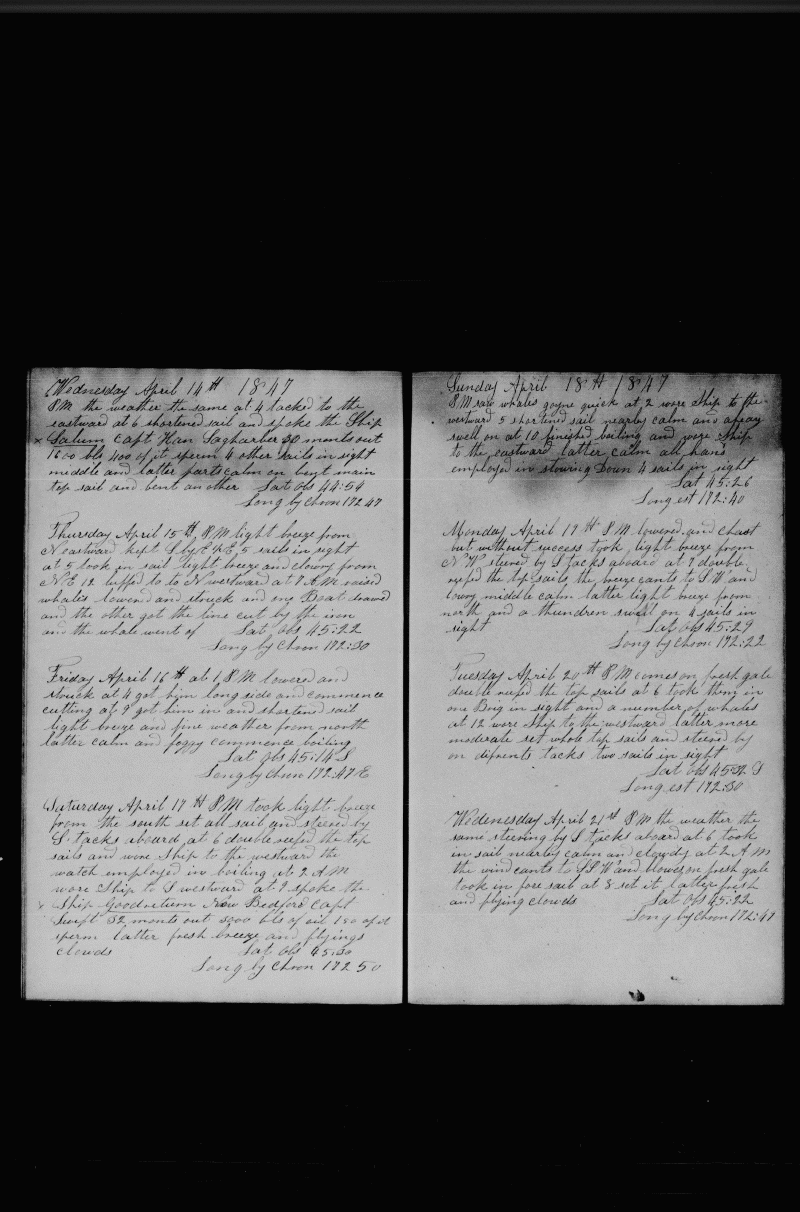 Wednesday April 14th 1847
P.M. the weather the same at 4 tacked to the
eastward at 6 shortened sail and spoke the Ship
x Salum Capt Han Sagharber 30 monts out
1600 bls 400 of it sperm 4 other sails in sight
middle and latter parts calm on bent main
top sail and bent another Lat obs 44:54
Long by Chron 172 47
Thursday April 15th P.M light breeze from
N eastward kept S by E 1/2 E, 5 sails in sight
at 5 took in sail light breeze and clowy from
N.E 12 luffed to to N westward at 7 A.M. raised
whales lowered and struck and one Boat drawed
and the other got the line cut by the iron
and the whale went of Lat obs 45:22
Long by Chron 172:30
Friday April 16th at 1 P.M lowered and
struck at 4 got him long side and commence
cutting at 8 got him in and shortined sail
light breeze and fine weather from north
latter calm and foggy commence boiling
Lat obs 45:14 S
Long by Chron 172:47 E
Saturday April 17th P.M took light breeze
from the south set all sail and steered by
S. tacks aboard, at 6 double reefed the top
sails and wore Ship to the westward the
watch employed in boiling at 2 A M
wore Ship to S westward at 7 spoke the
x Ship Goodreturn New Bedford Capt
Swift 32 monts out 3000 bls of oil 150 of it
sperm latter fresh breeze and flyings
clowds Lat obs 45:30
Long by Chron 172 50
Sunday April 18th 1847
P.M saw whales goyne quick at 2 wore Ship to the
westward 5 shortened sail nearly calm and a heavy
swell on at 10 finished boiling and wore Ship
to the eastward latter calm all hans
employed in stowing Down 4 sails in sight
Lat 45:26
Long est 172:40
Monday April 19th P.M lowered and chast
but without success took light breeze from
N W steered by S tacks aboard at 7 double
reefed the top sails, the breeze cants to S.W and
lowry middle calm latter light breeze from
north and a thundren swell on 4 sails in
sight Lat obs 45:29
Long by Chron 172:22
Tuesday April 20th P.M comes on fresh gale
double reefed the top sails at 6 took them in
one Brig in sight and a number of whales
at 12 wore Ship to the westward latter more
moderate set whole top sails and steered by
on difrents tacks two sails in sight
Lat obs 45:32 S
Long est 172:30
Wedenesday April 21st P.M the weather the
same steering by S tacks aboard at 6 took
in sail nearly calm and clowdy at 2 A M
the wind cants to S.S.W and blowes on fresh gale
took in fore sail at 8 set it latter fresh
and flying clowds Lat obs 45:22
Long by Chron 172:47